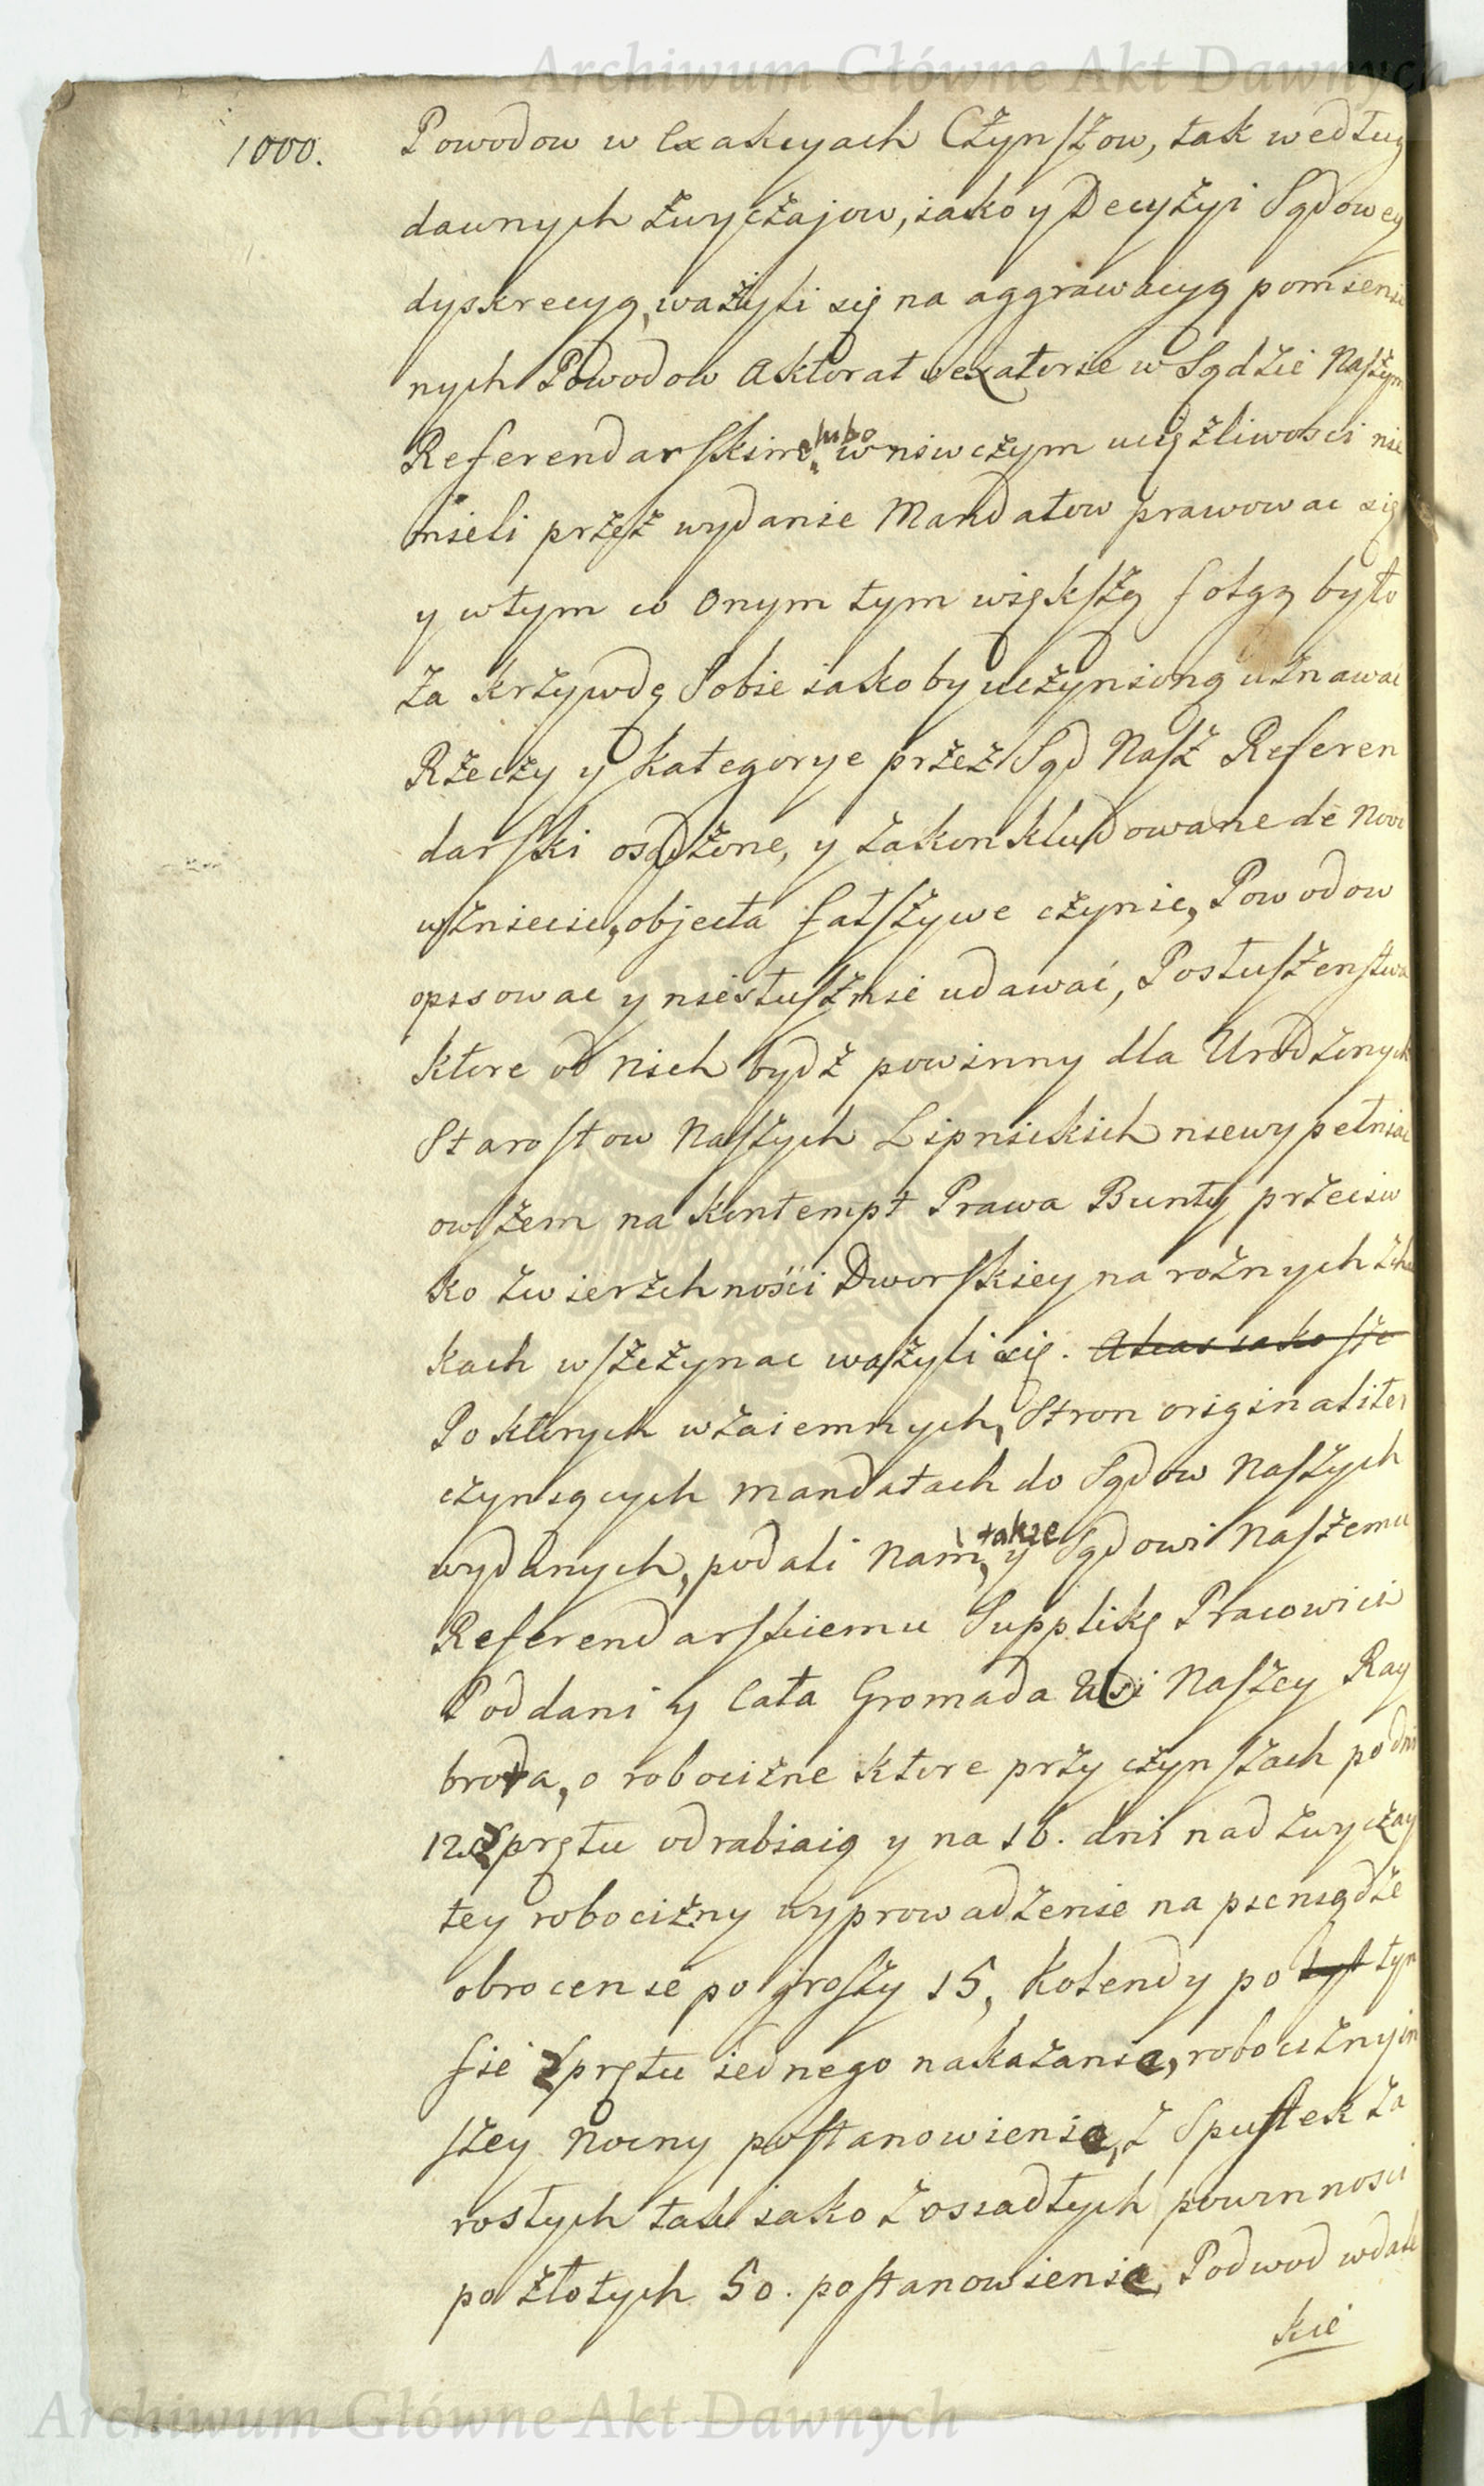 Archiwum Główne Akt Dawnych
1000.
Powodow w Exakcyach Czynszow, tak według
dawnych zwyczajow, iako y Decyzyi Sądowey
dyskrecyą, ważyli się na aggrawacyą pomienio
nych Powodow Aktorat vexatorie w Sądzie Naszym
Referendarskim, lubo w niwczym uciążliwosci nie
mieli przez wydanie Mandatow prawowac się
y w tym co onym tym większą folgą było
za krzywdę Sobie iakoby uczynioną uznawać
Rzeczy y Kategorye przez Sąd Nasz Referen
darski osądzone, y zakonkludowane de Novo
wzniecic, objecta fałszywe czynic, Powodow
opisowac y niesłusznie udawać, Posłuszenstwa
ktore od nich bydz powinny dla Urodzonych
Starostow Naszych Lipnickich niewypełniac
owszem na kontempt Prawa Bunty przeciw
ko zwierzchności Dworskiey na rożnych Scha
kach wszczynac ważyli się. A teraz iako sze
Po ktorych wzaiemnych, Stron originaliter
czyniących mandatach do Sądow Naszych
wydanych, podali Nam, także y Sądowi Naszemu
Referendarskiemu Supplikę Pracowici
Poddani y Cała Gromada Wsi Naszey Ray
broda, o robocizne ktore przy czynszach po dni
12. z prętu odrabiaią y na 16. dni nad zwyczay
tey robocizny wyprowadzenie na pieniądze
obrocenie po groszy 15, Kolendy po tyt tyn
fie z prętu iednego nakazania, robocizny in
szey Nocny postanowienia, z Spustek za
rosłych tak iako z ossadłych powinnosci
po złotych 50. postanowienia, Podwod w dale
kie
Archiwum Główne Akt Dawnych